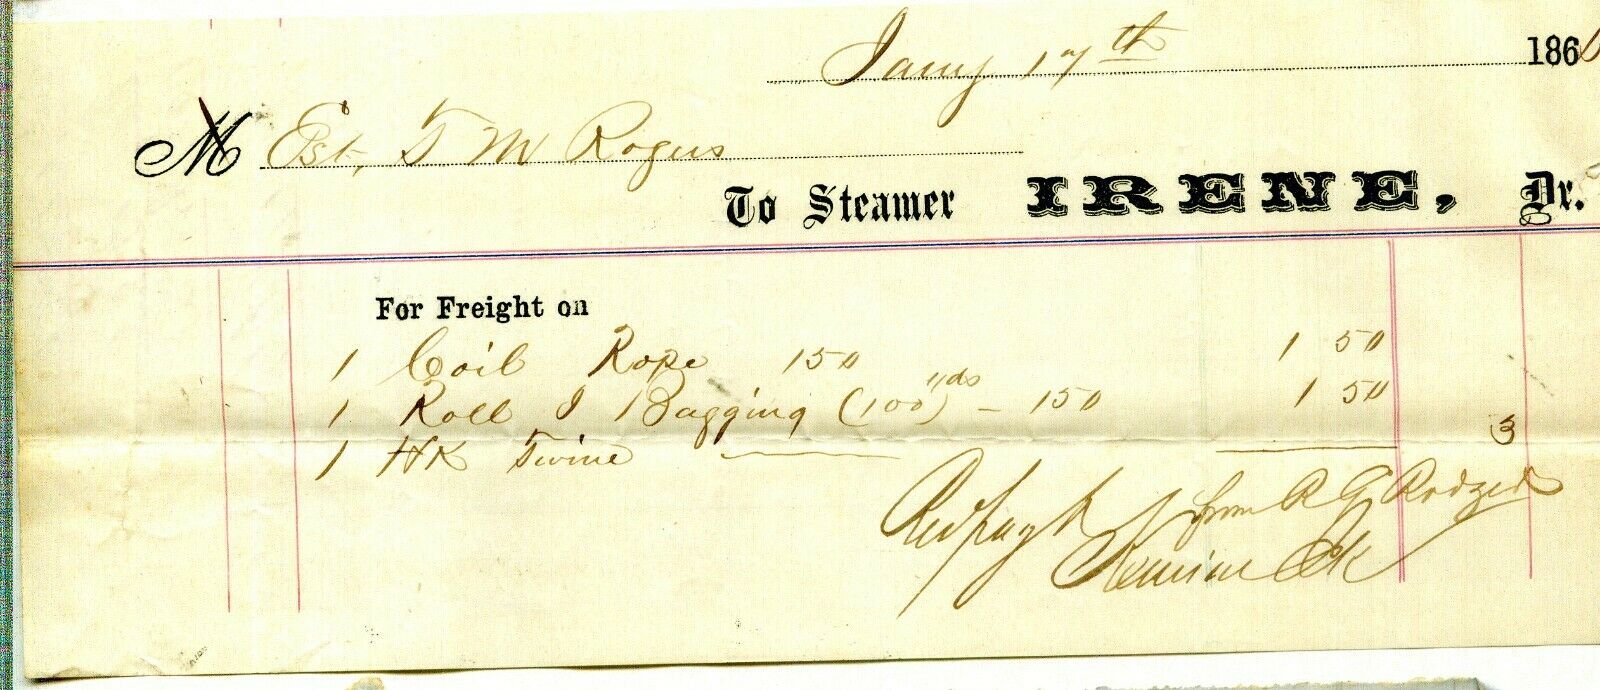 Jany 17th 186
M Est. T M Rogers
To Steamer IRENE, Dr.
For Freight on
1 Coil Rope 150 1 50
1 Roll I Bagging (100 yds) - 150 1 50
1 HK Twine 3
from R G
Clk